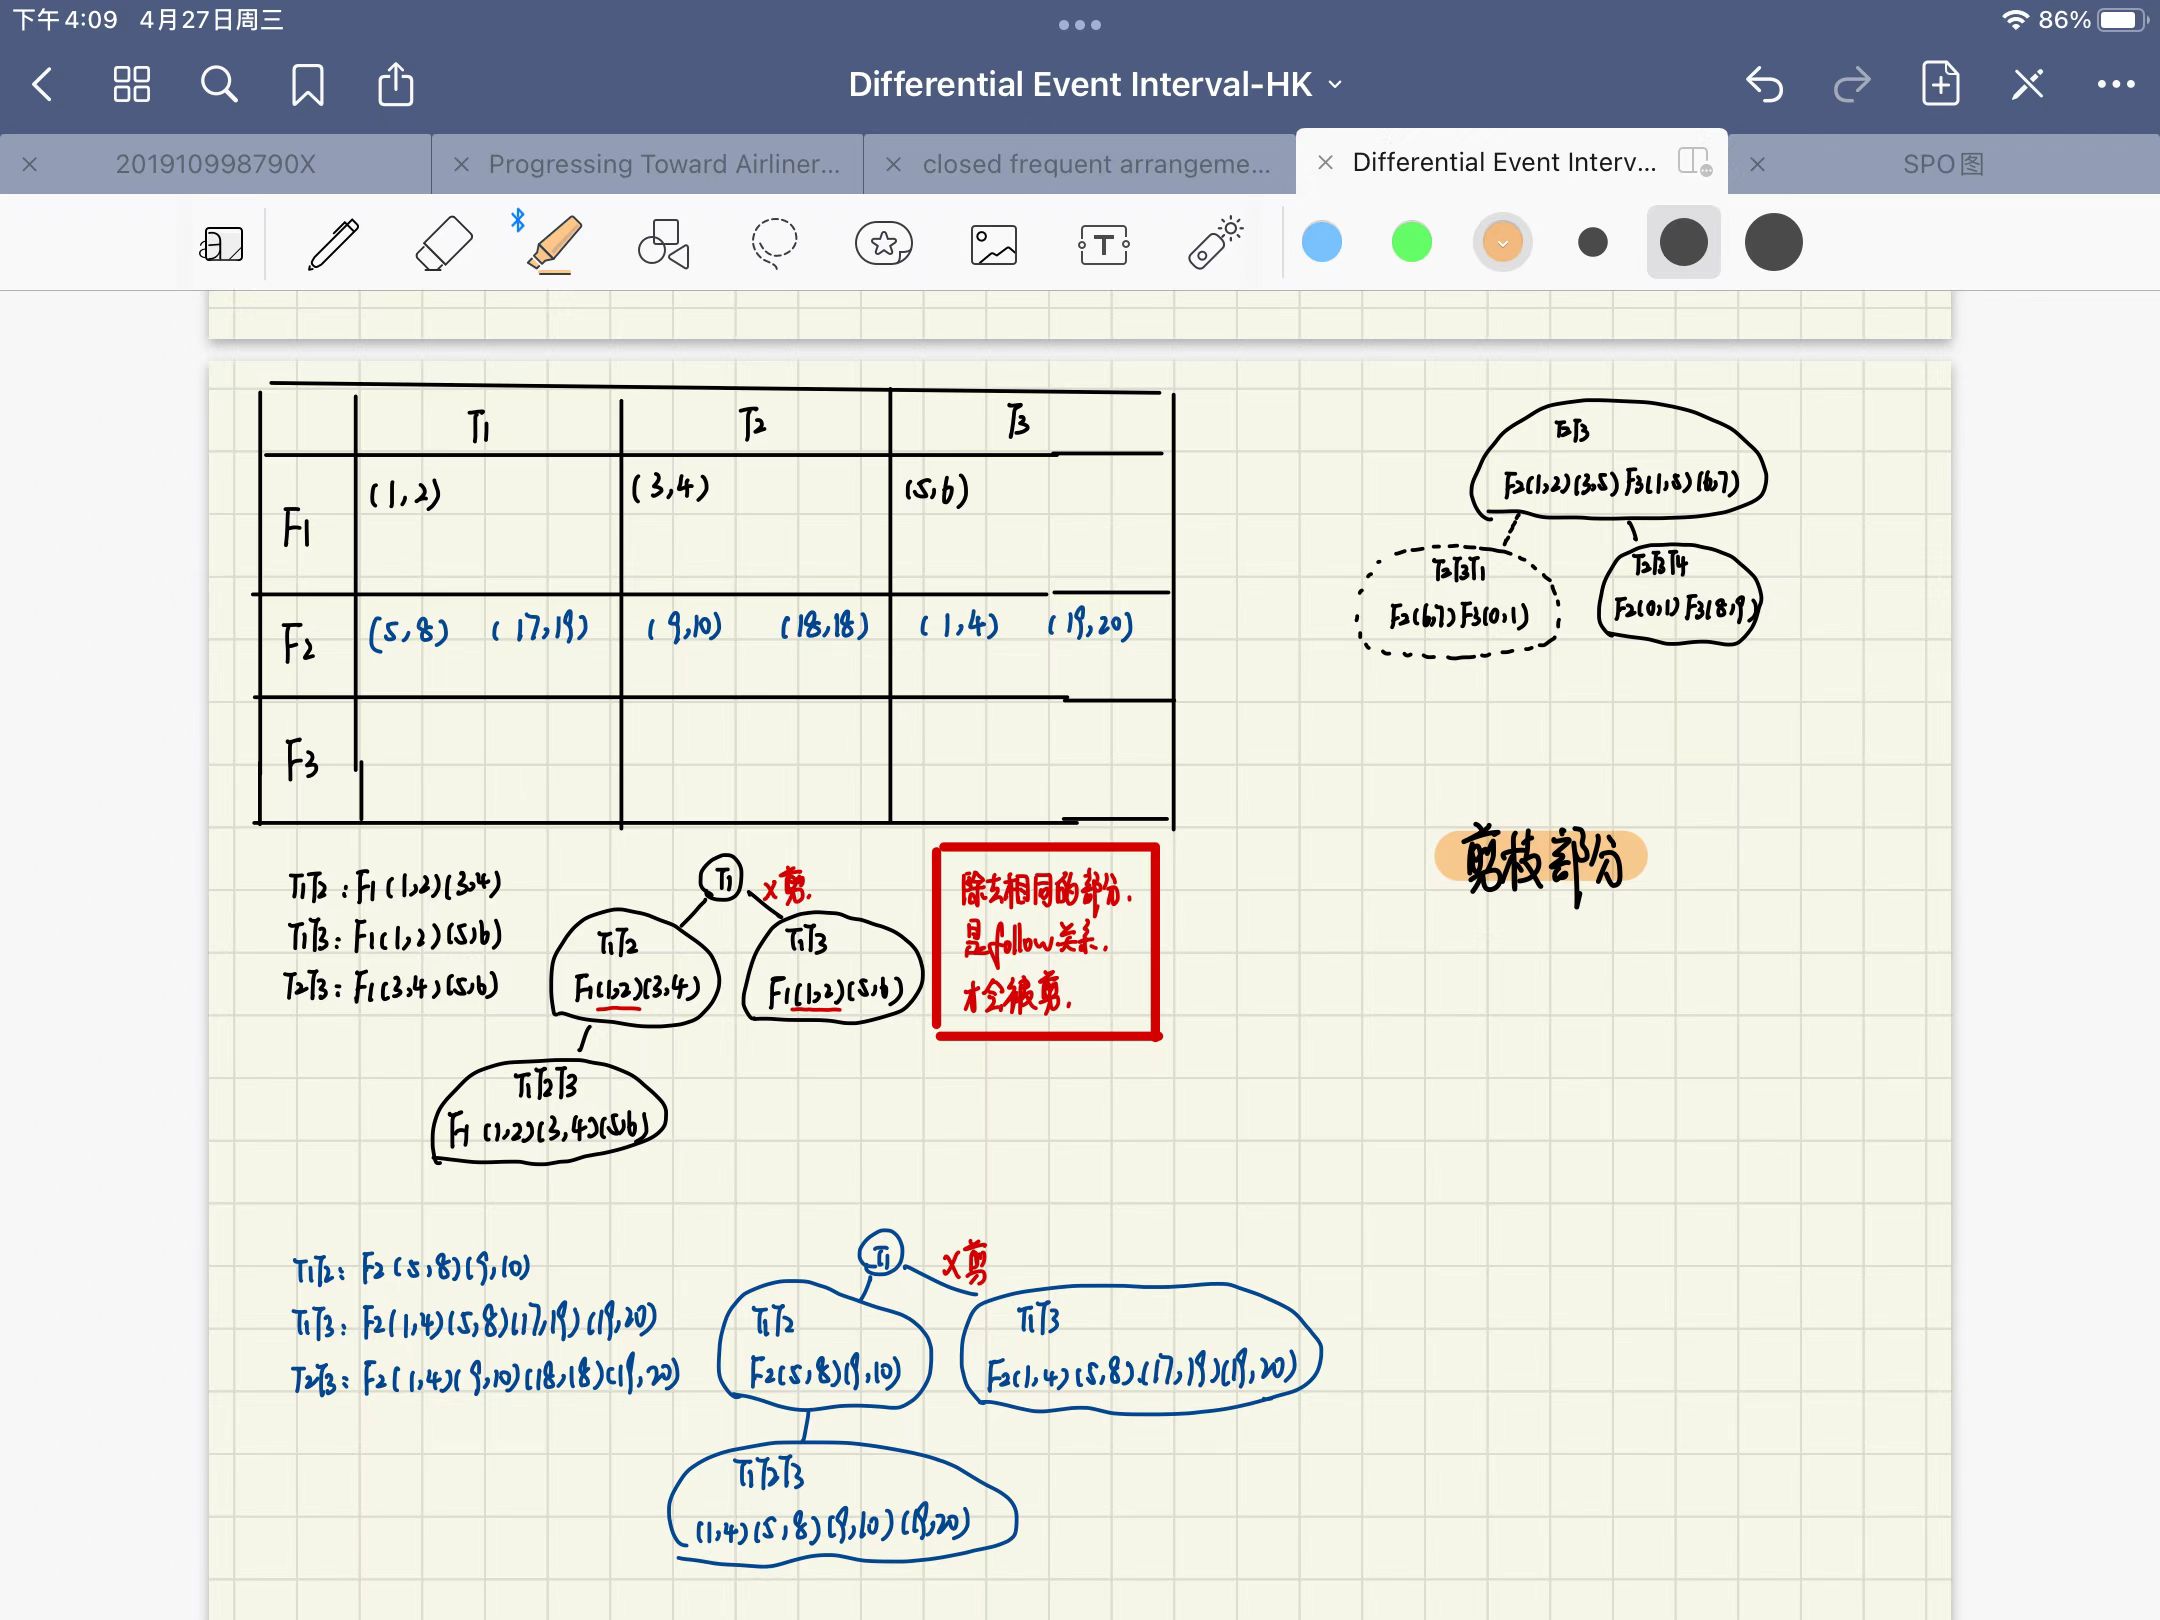 下午4:09 4月27日周三
86%
Differential Event Interval-HK
201910998790X
Progressing Toward Airliner...
closed frequent arrangeme...
Differential Event Interv...
SPO图
T1 T2 T3
F1 (1,2) (3,4) (5,6)
F2 (5,8) (17,19) (9,10) (18,18) (1,4) (19,20)
F3
T2T3
F2(1,2)(3,5) F3(1,5)(6,7)
T2T3T1
F2(6,7)F3(0,1)
T2T3T4
F2(0,1) F3(8,9)
剪枝部分
T1T2:F1(1,2)(3,4)
T1T3:F1(1,2)(5,6)
T2T3:F1(3,4)(5,6)
T1
x剪.
T1T2
F1(1,2)(3,4)
T1T3
F1(1,2)(5,6)
T1T2T3
F1 (1,2)(3,4)(5,6)
除去相同的部分.
是follow关系.
才会被剪.
T1T2: F2(5,8)(9,10)
T1T3: F2(1,4)(5,8)(17,19)(19,20)
T2T3: F2(1,4)(9,10)(18,18)(19,20)
T1
x剪
T1T2
F2(5,8)(9,10)
T1T3
F2(1,4)(5,8)(17,19)(19,20)
T1T2T3
(1,4)(5,8)(9,10)(19,20)